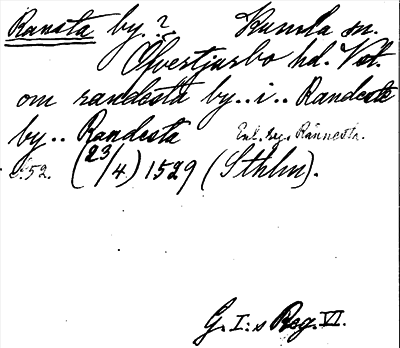 Ransta by.? Kumla sn.
Öfvertjurbo hd. Vst.
om randesta by..i.. Randesta
by.. Randesta Enl. reg. Rännesta.
s. 52. (23/4) 1529 (Sthlm).
G. I:s Reg. VI.